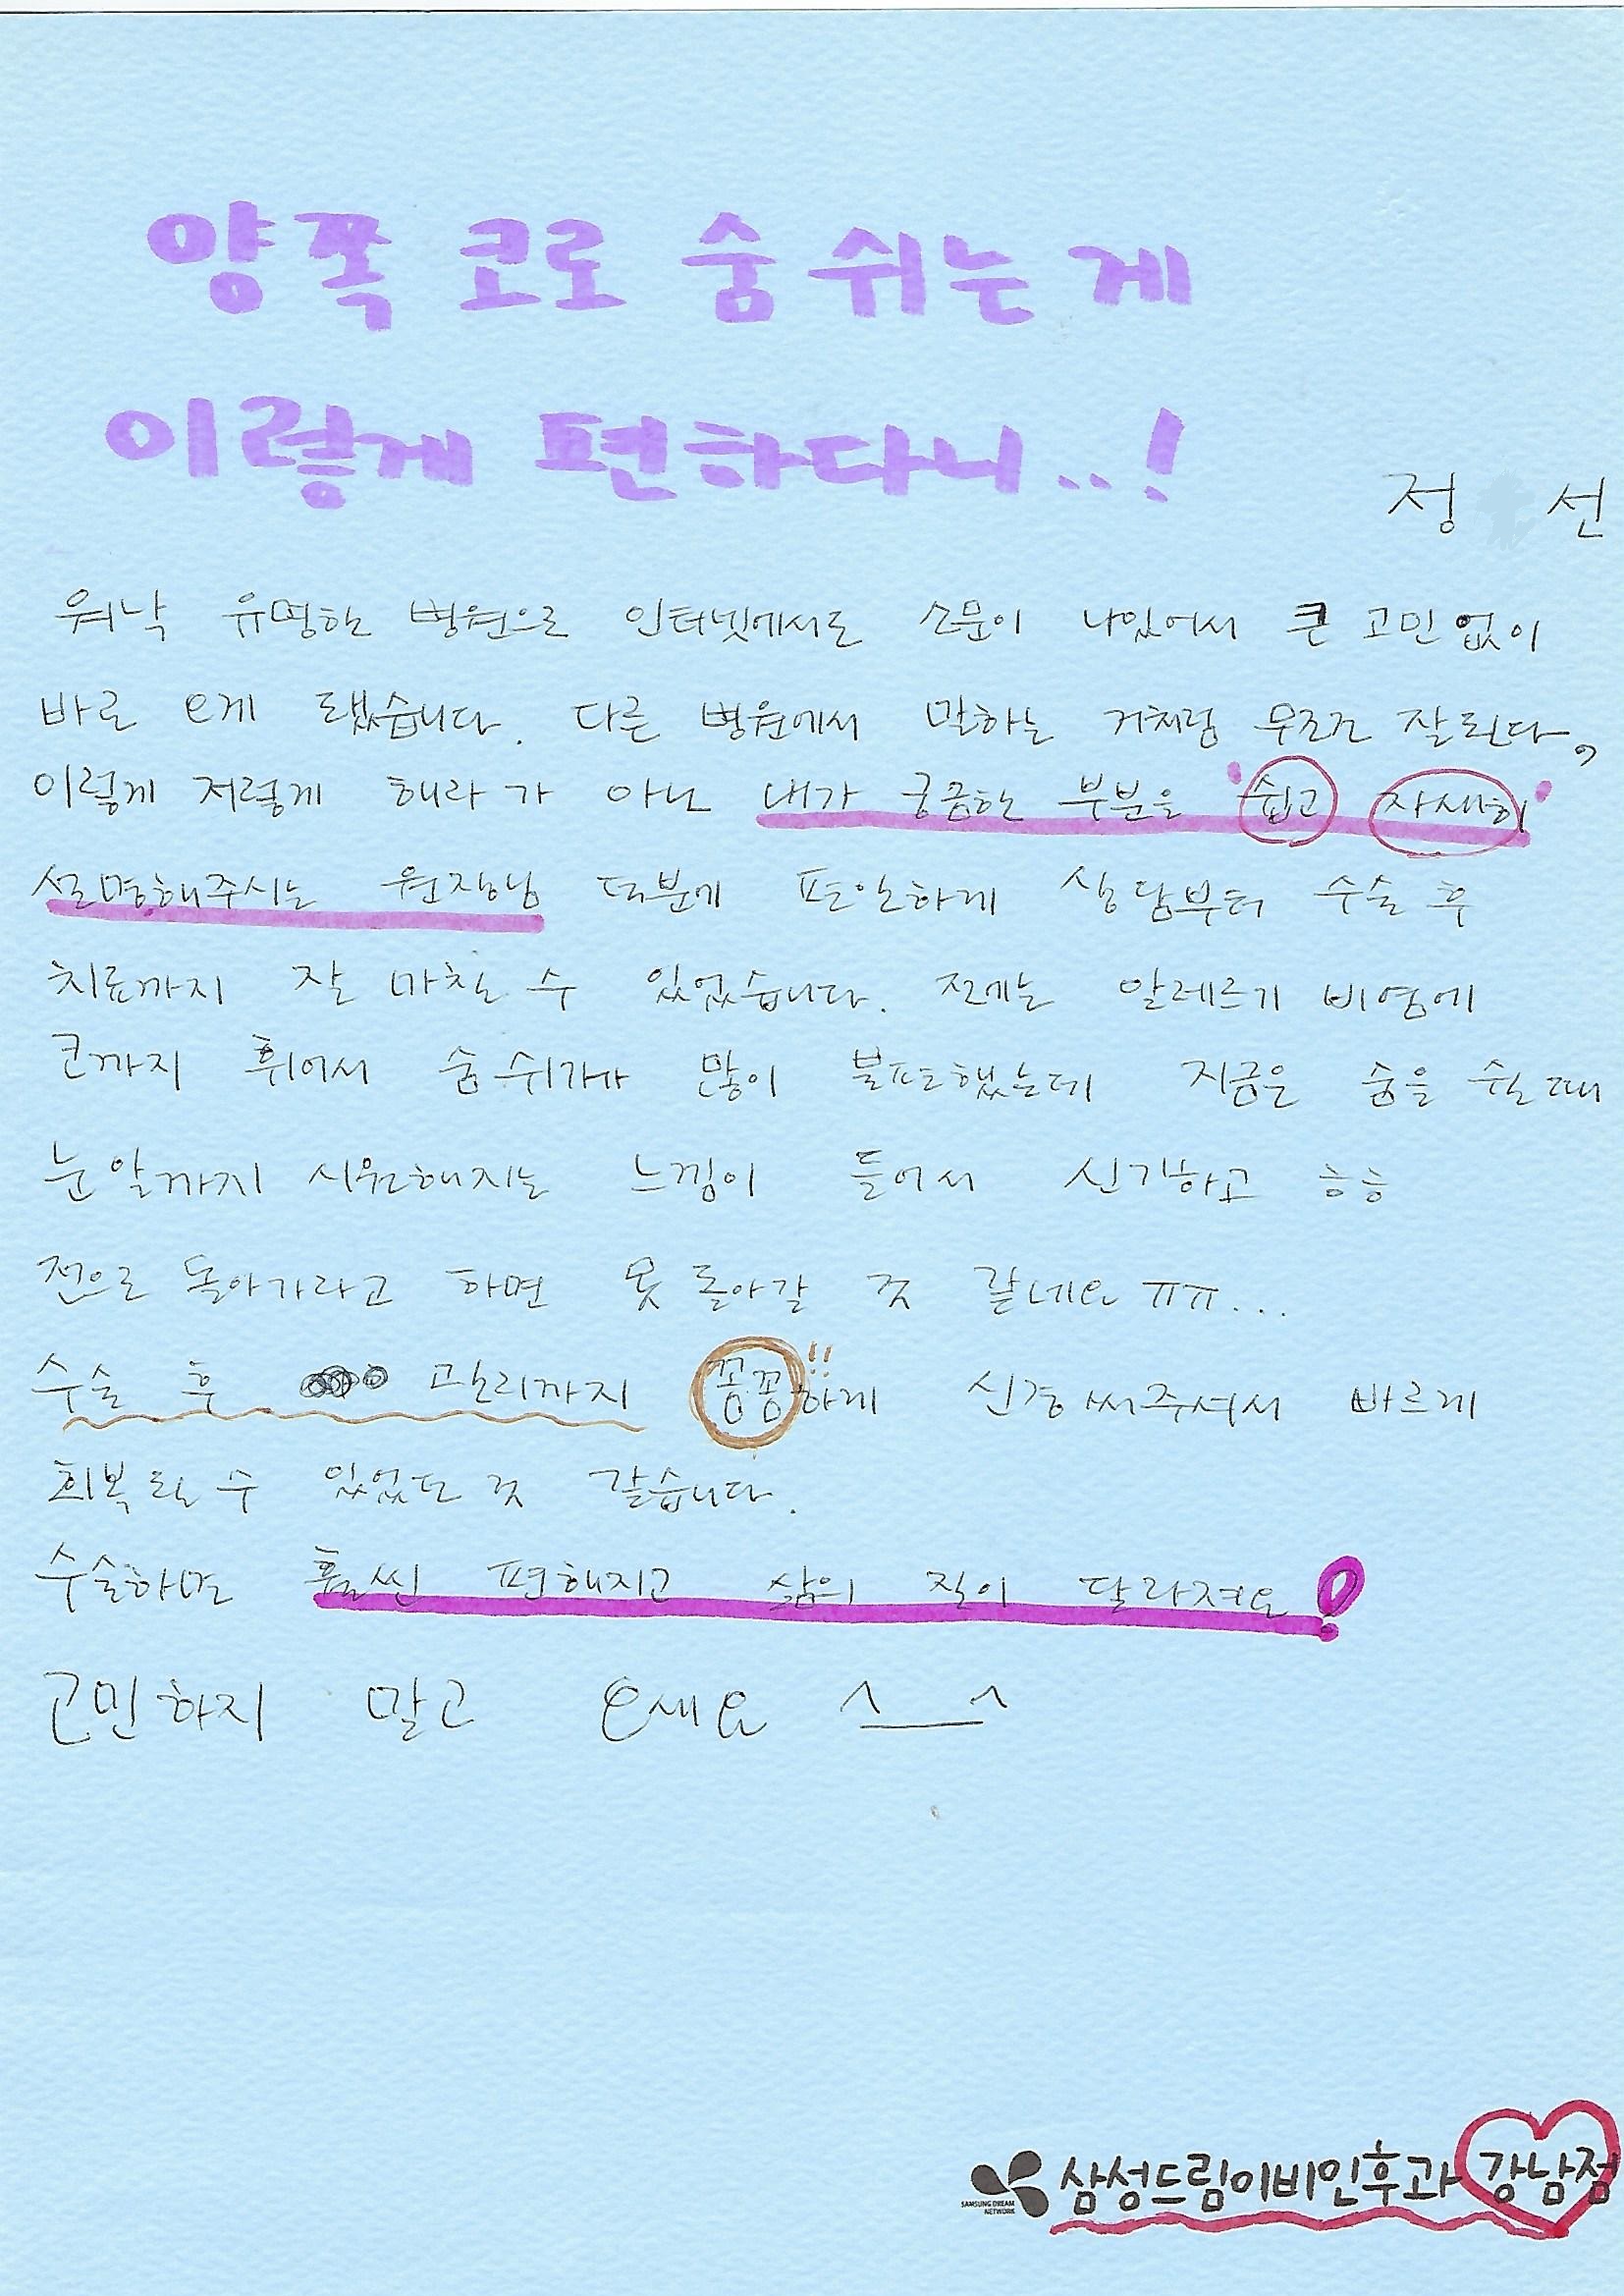 양쪽 코로 숨 쉬는 게
이렇게 편하다니..!
정 선
워낙 유명한 병원으로 인터넷에서도 소문이 나있어서 큰 고민없이
바로 오게 됐습니다. 다른 병원에서 말하는 거처럼 무조건 잘된다,
이렇게 저렇게 해라가 아닌 내가 궁금한 부분을 '쉽고 자세히'
설명해주시는 원장님 덕분에 편안하게 상담부터 수술 후
치료까지 잘 마칠 수 있었습니다. 전에는 알레르기 비염에
코까지 휘어서 숨쉬기가 많이 불편했는데 지금은 숨을 쉴 때
눈알까지 시원해지는 느낌이 들어서 신기하고 ㅎㅎ
전으로 돌아가라고 하면 못 돌아갈 것 같네요 ㅠㅠ...
수술 후 관리까지 꼼꼼!!하게 신경써주셔서 빠르게
회복될 수 있었던 것 같습니다.
수술하면 훨씬 편해지고 삶의 질이 달라져요!
고민하지 말고 오세요 ^__^
SAMSUNG DREAM NETWORK 삼성드림이비인후과 강남점